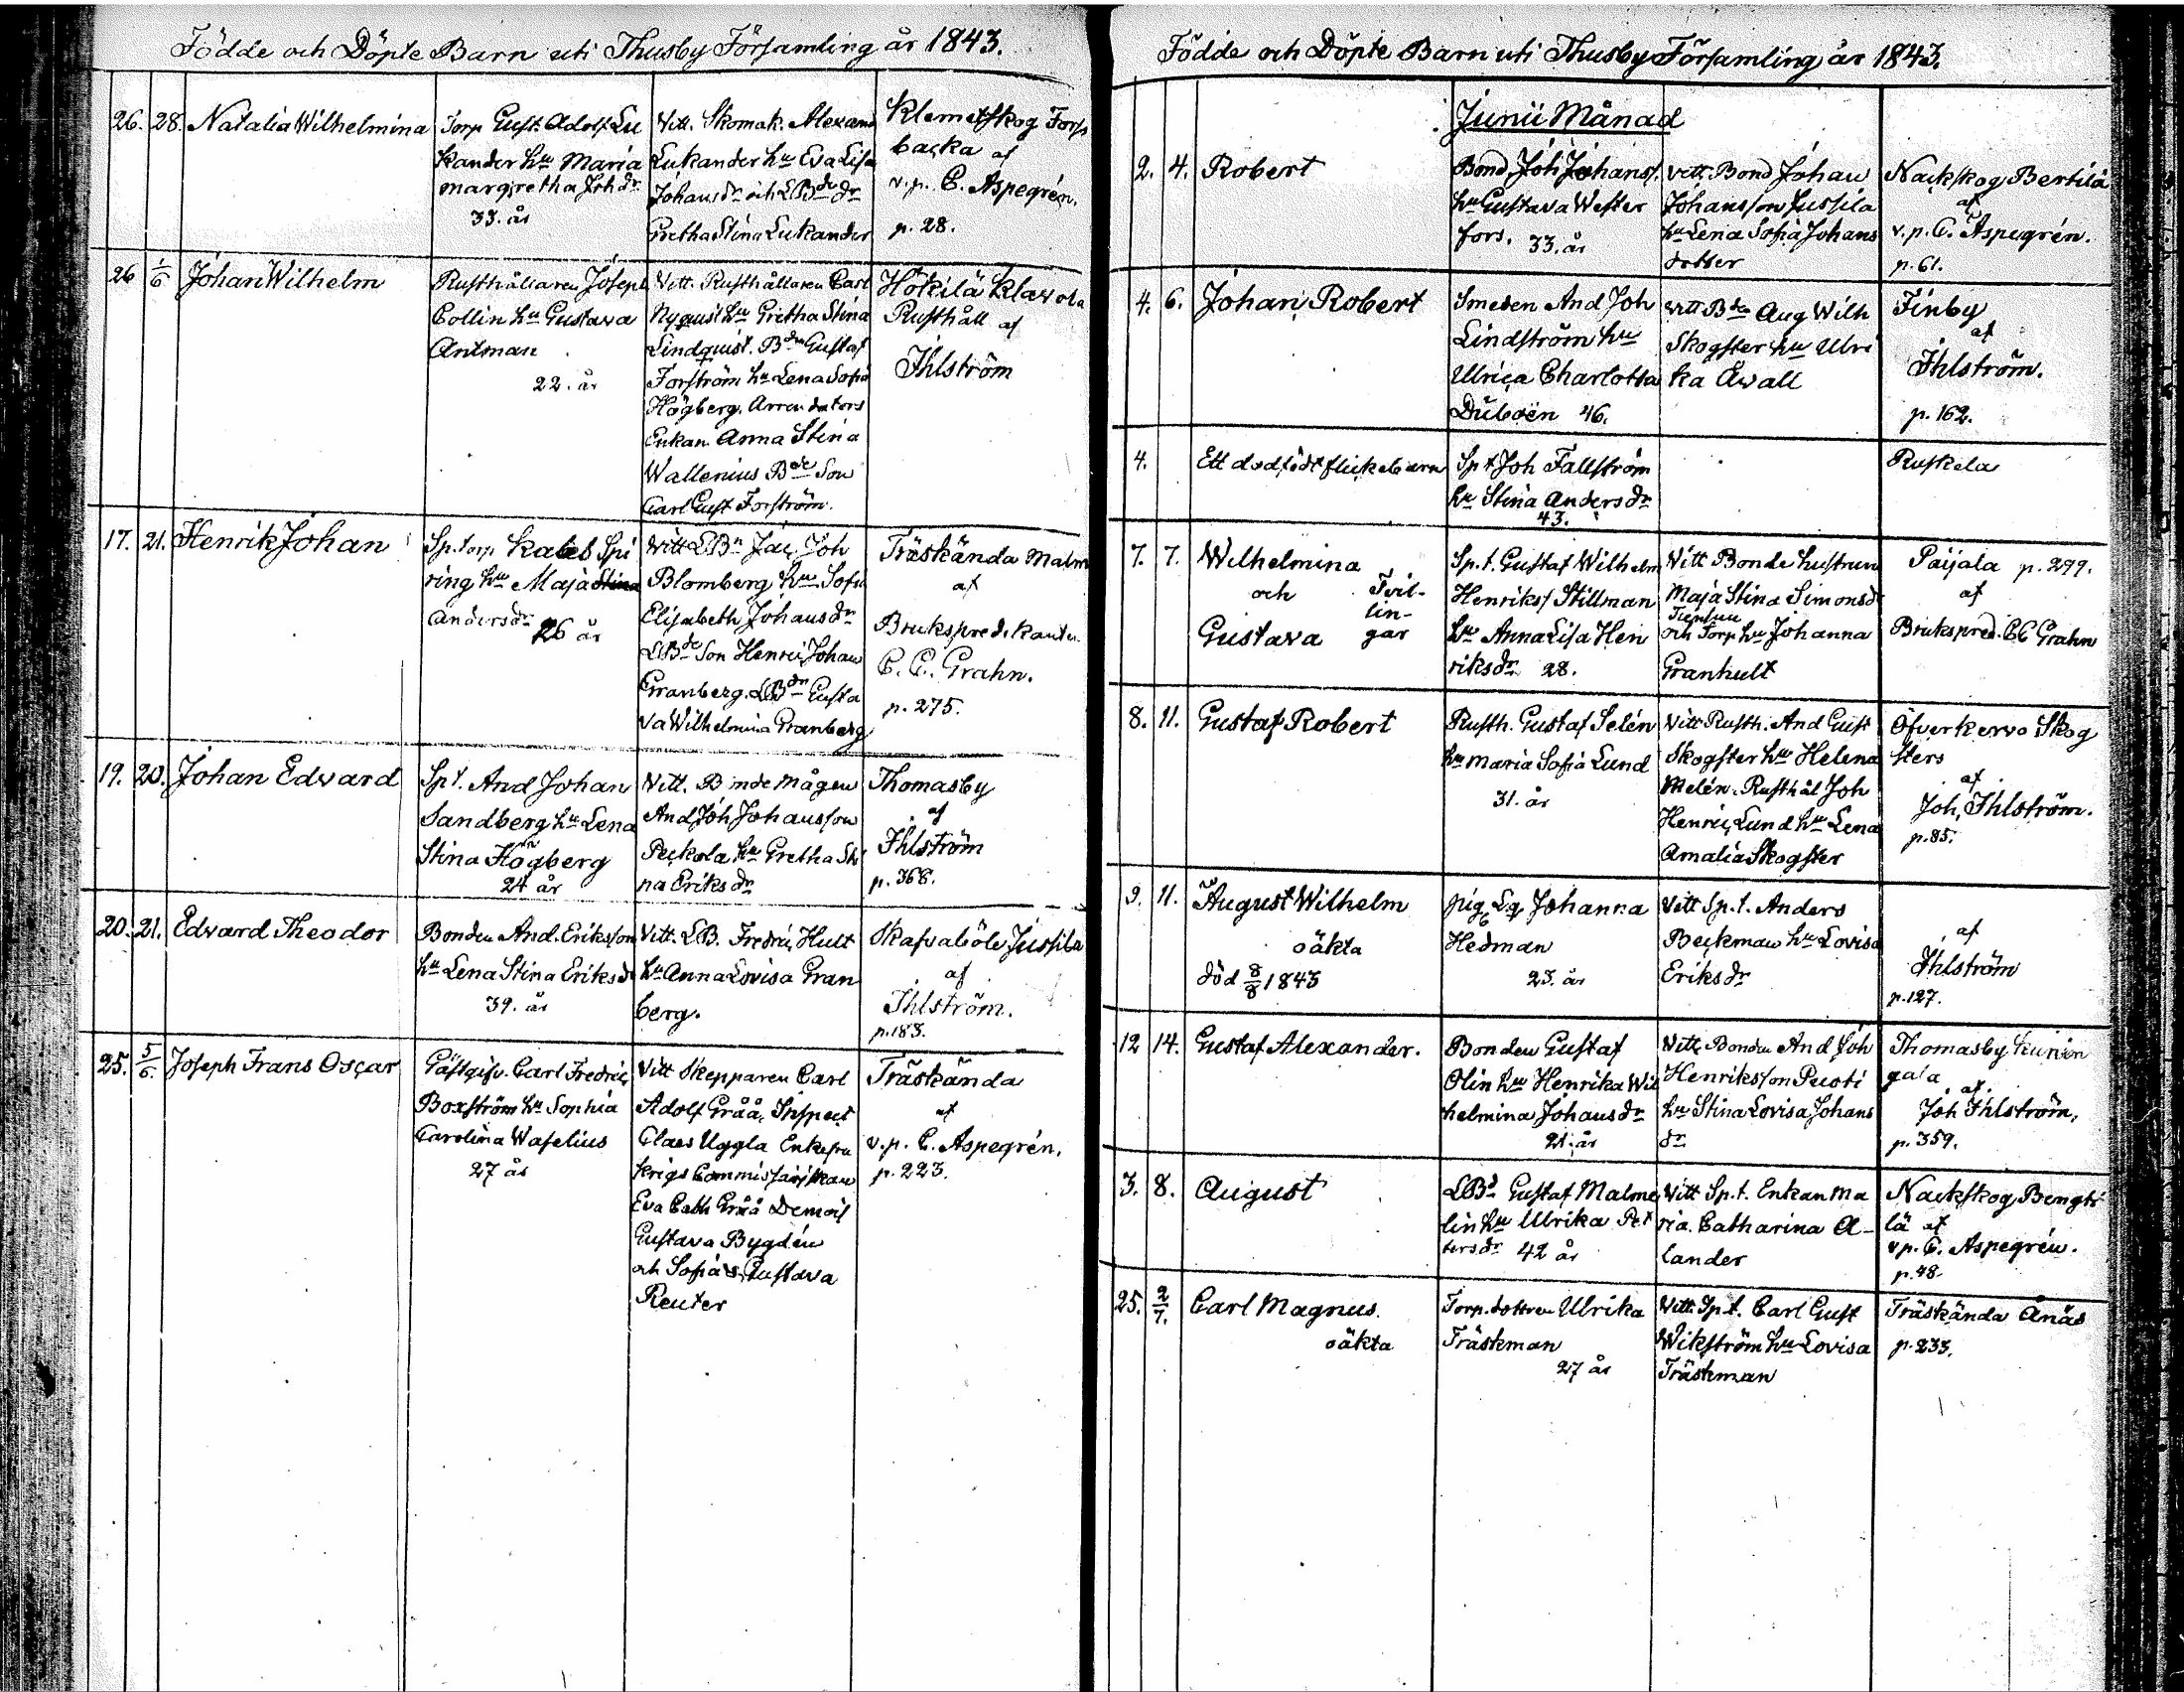 Födde och Döpte Barn uti Thusby Församling år 1843.
26. 28. Natalia Wilhelmina
Torp Gust. Adolf Lu
kander hu Maria
margretha Joh dr
33. år
Vitt. Skomak. Alexand
Lukander hu Eva Lisa
Johans dr och LBde dr
Gretha Stina Lukander
Klemetskog Tors
backa af
v.p. C. Aspegrén.
p. 28.
26 1/6 Johan Wilhelm
Rusthållaren Joseph
Collin hu Gustava
Antman
22. år
Vitt. Rusthållaren Carl
Nyquist hu Gretha Stina
Lindquist. Bden Gustaf
Forström hu Lena Sofia
Högberg. Arrendators
Enkan Anna Stina
Wallenius Bde Son
Carl Gust Forström.
Hökilä Klavola
Rusthåll af
Ihlström
17. 21. Henrik Johan
Sp.torp Kaleb Spi
ring hu Maja Stina
Anders dr 26 år
Witt LBn Jac Joh
Blomberg hu Sofia
Elisabeth Johans dr
LBde Son Henric Johan
Granberg. LBdr Gusta
va Wilhelmina Granberg
Träskända Malm
af
Brukspredikanten
C. C. Grahn.
p. 275.
19. 20. Johan Edvard
Spt. And Johan
Sandberg hu Lena
Stina Högberg
24 år
Vitt. Bonde Mågen
And Joh Johansson
Peckola hu Gretha Sti
na Eriks dr
Thomasby
af
Ihlström
p. 368.
20. 21. Edvard Theodor
Bonden And. Eriksson
hu Lena Stina Eriks dr
39. år
Vitt. LB. Fredric Hult
hu Anna Lovisa Gran
berg.
Skafvaböle Jussila
af
Ihlström.
p. 183.
25. 5/6. Joseph Frans Oscar
Gästgifv. Carl Fredric
Boxström hu Sophia
Carolina Waselius
27 år
Vitt Skepparen Carl
Adolf Gråå, Inspect
Claes Uggla Enkefru
Krigs Commissariskan
Eva Cath Gråå Demois
Gustava Bygdén
och Sofia Gustava
Reuter
Träskända
af
v.p. C. Aspegrén.
p. 223.
Födde och Döpte Barn uti Thusby Församling år 1843.
Junii Månad
2. 4. Robert
Bond Joh Johanss.
hu Gustava Wester
fors. 33. år
Vitt. Bond Johan
Johansson Jussila
hu Lena Sofia Johans
dotter
Nackskog Bertilä
af
v.p. C. Aspegrén.
p. 61.
4. 6. Johan Robert
Smeden And Joh
Lindström hu
Ulrica Charlotta
Duboën 46.
Vitt Bde Aug Wilh
Skogster hu Ulri
ka Åwall
Finby
af
Ihlström.
p. 162.
4. Ett dödfödt flickebarn
Spt Joh Fallström
hu Stina Anders dr
43.
Ruskela
7. 7. Wilhelmina
och Tvil-
lin-
Gustava gar
Sp.t. Gustaf Wilhelm
Henrikss Stillman
hu Anna Lisa Hen
riks dr 28.
Witt Bonde hustrun
Maja Stina Simons dr
och Torp hu Johanna
Granhult
Paijala p. 299.
af
Brukspred. C C Grahn
8. 11. Gustaf Robert
Rusth. Gustaf Selén
hu Maria Sofia Lund
31. år
Vitt Rusth. And Gust
Skogster hu Helena
Melén. Rusthål Joh
Henric Lund hu Lena
Amalia Skogster
Öfverkervo Skog
sters
af
Joh. Ihlström.
p. 85.
9. 11. August Wilhelm
oäkta
död 8/8 1843
pig Johanna
Hedman
23. år
Vitt Sp.t. Anders
Beckman hu Lovisa
Eriks dr
af
Ihlström
p. 127.
12 14. Gustaf Alexander.
Bonden Gustaf
Olin hu Henrika Wil
helmina Johans dr
21. år
Vitt Bonden And Joh
Henriksson Peisti
hu Stina Lovisa Johans
dr
Thomasby Kunin
gala
af
Joh Ihlström,
p. 359.
3. 8. August
LBd Gustaf Malme
lin hu Ulrika Pet
ters dr 42 år
Vitt Sp.t. Enkan Ma
ria Catharina A-
lander
Nackskog Bengts
lä af
vp. C. Aspegrén.
p. 48.
25. 2/7. Carl Magnus.
oäkta
Torp. dottren Ulrika
Träskman
27 år
Vitt. Sp.t. Carl Gust
Wikström hu Lovisa
Träskman
Träskända Ånäs
p. 233.